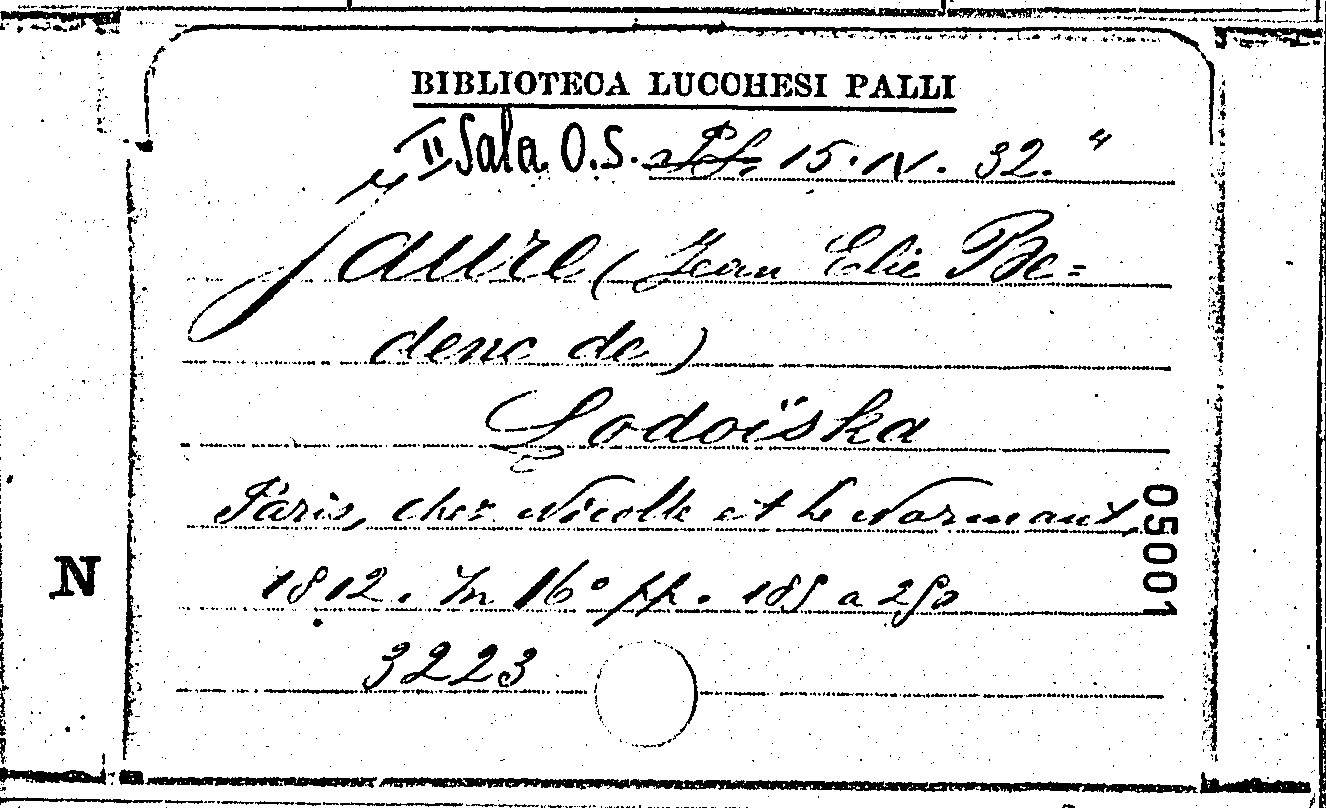 BIBLIOTECA LUCCHESI PALLI
II Sala. O.S. 15. IV. 32. "
Jaure (Jean Elie Be=
denc de)
Lodoïska
Paris, chez Nicolle et Le Normant,
1812. In 16° pp. 185 a 250
3223
N
05001